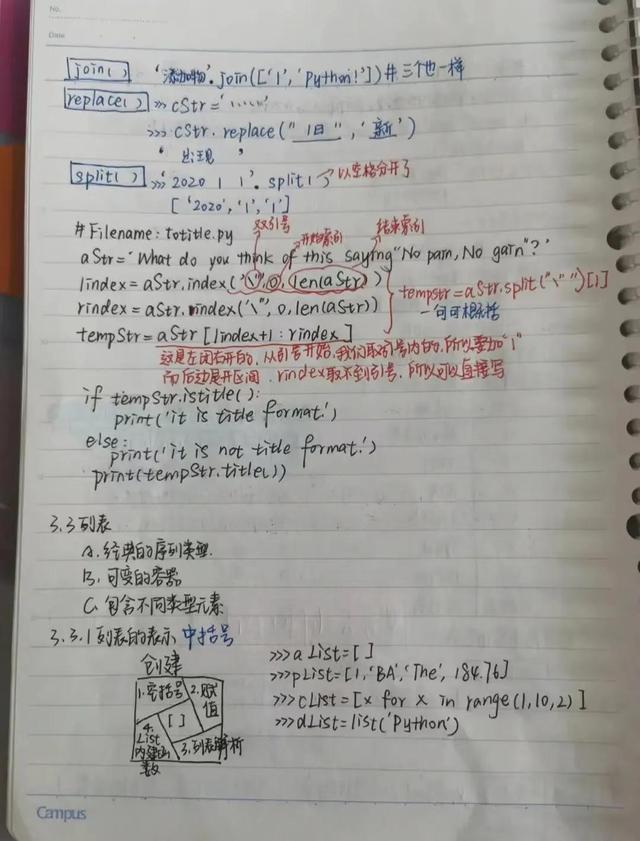 No.
Date
join() '添加物'.join(['1','Python!']) #三个也一样
replace() >>> cStr='······'
>>> cStr.replace("旧",'新')
'出现'
split() >>> '2020 1 1'.split() 以空格分开了
['2020','1','1']
双引号
开始索引
结束索引
# Filename: totitle.py
aStr='What do you think of this saying"No pain, No gain"?'
lindex=aStr.index('\"',0,len(aStr))
tempStr=aStr.split("\"")[1]
rindex=aStr.rindex("\"",0,len(aStr))
一句可概括
tempStr=aStr[lindex+1:rindex]
这是左闭右开的,从引号开始,我们取引号内的,所以要加"1"
而后边是开区间,rindex取不到引号,所以可以直接写
if tempStr.istitle():
print('it is title format.')
else:
print('it is not title format.')
print(tempStr.title())
3.3列表
A.经典的序列类型.
B.可变的容器
C.包含不同类型元素
3.3.1列表的表示 中括号
创建
1.空括号
2.赋值
[ ]
4.List内建函数
3.列表解析
>>>aList=[]
>>>pList=[1,'BA','The',184.76]
>>>cList=[x for x in range(1,10,2)]
>>>dList=list('Python')
Campus